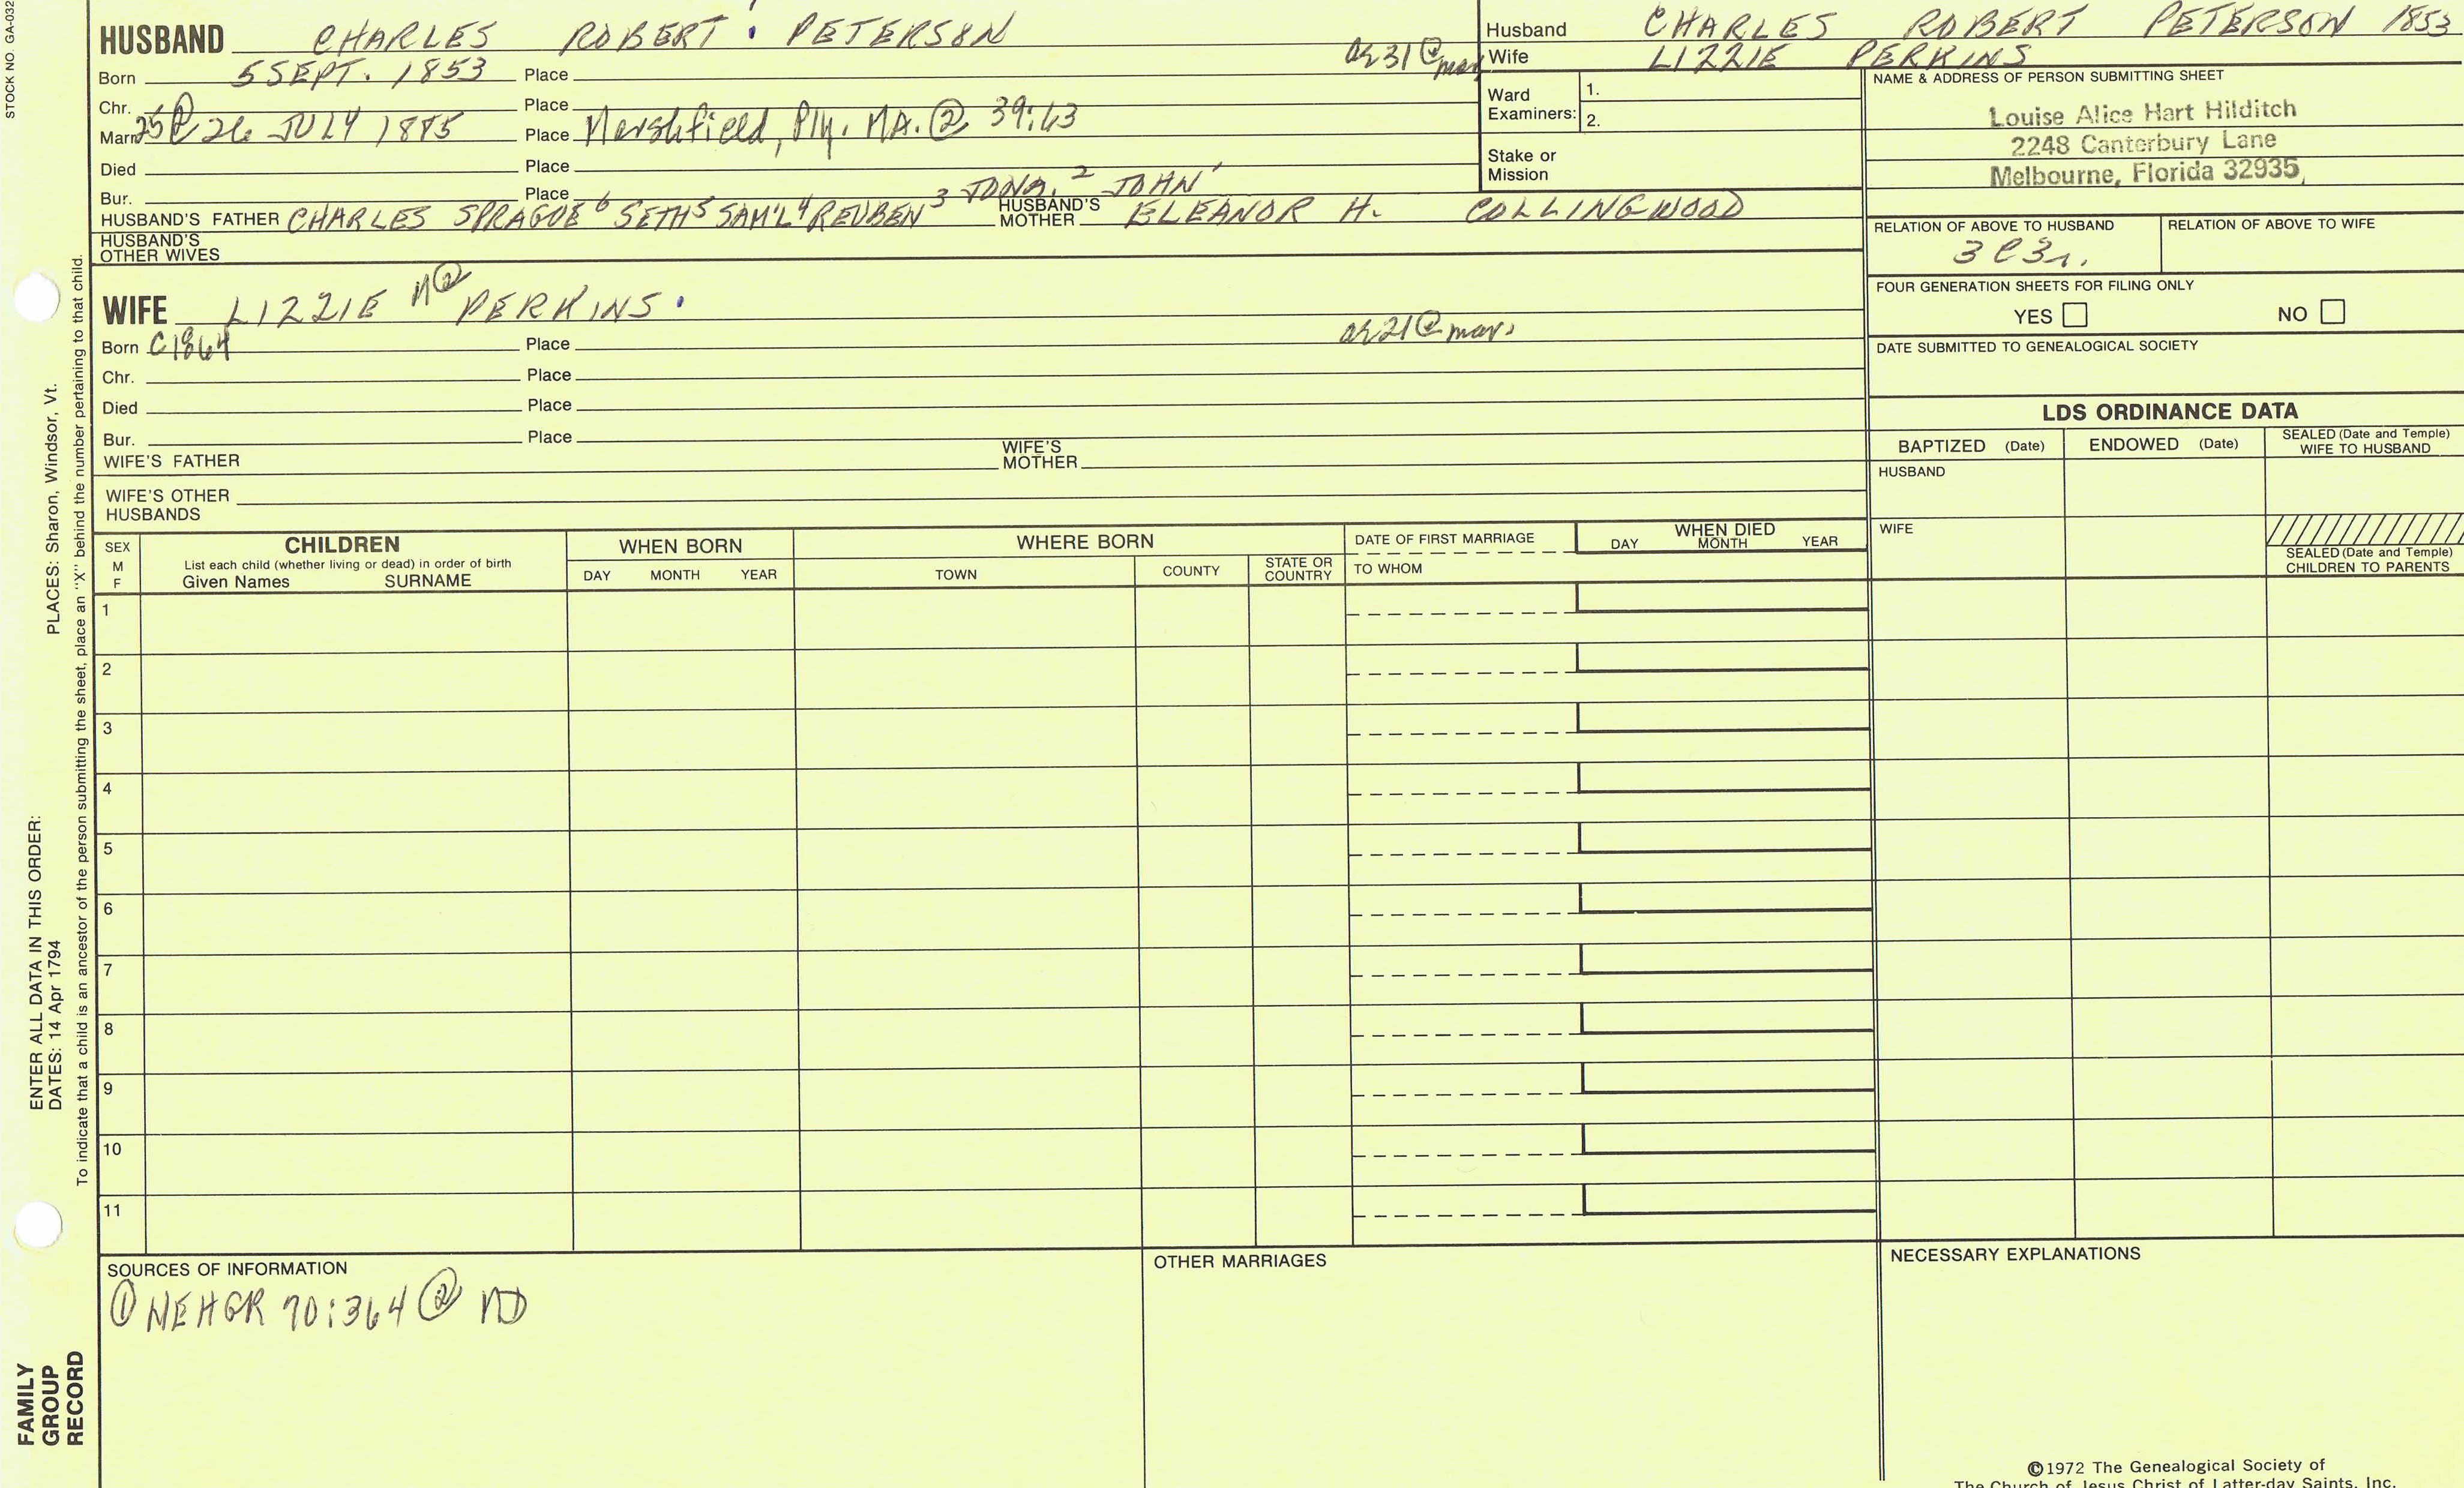 STOCK NO. GA-032
PLACES: Sharon, Windsor, Vt.
ENTER ALL DATA IN THIS ORDER:
DATES: 14 Apr 1794
To indicate that a child is an ancestor of the person submitting the sheet, place an "X" behind the number pertaining to that child.
FAMILY
GROUP
RECORD
HUSBAND CHARLES ROBERT PETERSON
Born 5 SEPT. 1853 Place 31 @ mar
Chr. Place
Marr 25 @ 26 JULY 1885 Place Marshfield, Ply. MA. @ 39:63
Died Place
Bur. Place
HUSBAND'S FATHER CHARLES SPRAGUE 6 SETH 5 SAM'L 4 REUBEN 3 JONA. 2 JOHN 1 HUSBAND'S MOTHER ELEANOR H. COLLINGWOOD
HUSBAND'S
OTHER WIVES
WIFE LIZZIE N @ PERKINS.
Born C1864 Place 21 @ mar.
Chr. Place
Died Place
Bur. Place
WIFE'S FATHER WIFE'S MOTHER
WIFE'S OTHER
HUSBANDS
Husband CHARLES ROBERT PETERSON 1853
Wife LIZZIE PERKINS
Ward
Examiners: 1.
2.
Stake or
Mission
NAME & ADDRESS OF PERSON SUBMITTING SHEET
Louise Alice Hart Hilditch
2248 Canterbury Lane
Melbourne, Florida 32935
RELATION OF ABOVE TO HUSBAND RELATION OF ABOVE TO WIFE
3C3r.
FOUR GENERATION SHEETS FOR FILING ONLY
YES NO
DATE SUBMITTED TO GENEALOGICAL SOCIETY
LDS ORDINANCE DATA
BAPTIZED (Date) ENDOWED (Date) SEALED (Date and Temple)
WIFE TO HUSBAND
HUSBAND
WIFE
SEALED (Date and Temple)
CHILDREN TO PARENTS
SEX
M
F
CHILDREN
List each child (whether living or dead) in order of birth
Given Names SURNAME
WHEN BORN
DAY MONTH YEAR
WHERE BORN
TOWN COUNTY STATE OR
COUNTRY
DATE OF FIRST MARRIAGE
TO WHOM
WHEN DIED
DAY MONTH YEAR
1
2
3
4
5
6
7
8
9
10
11
SOURCES OF INFORMATION
① NEHGR 70:364 ② ND
OTHER MARRIAGES
NECESSARY EXPLANATIONS
©1972 The Genealogical Society of
The Church of Jesus Christ of Latter-day Saints, Inc.